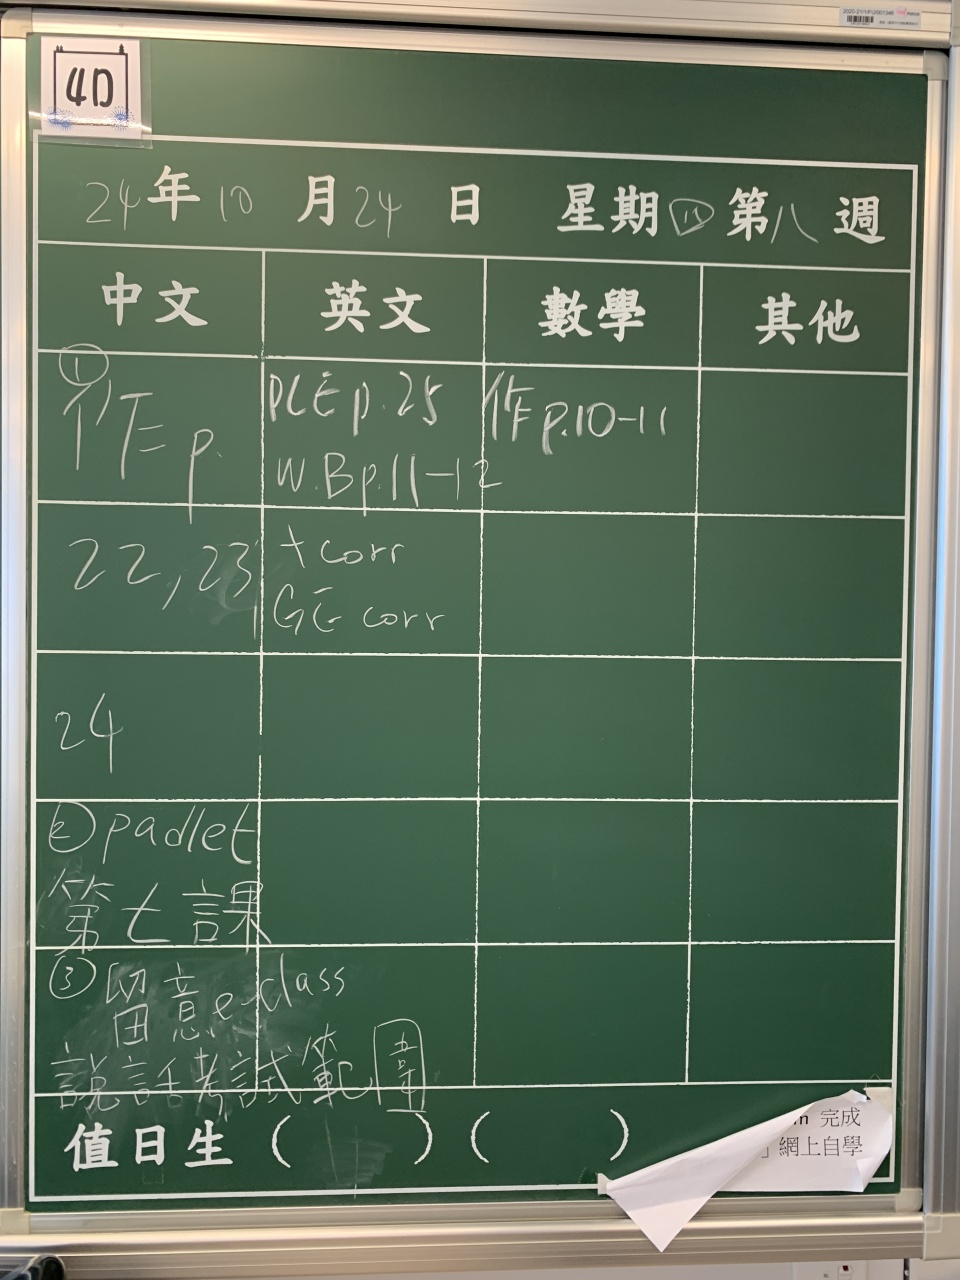 4D
24年10月24日 星期四第八週
中文 英文 數學 其他
①
作 p.
22, 23,
24
② padlet
第七課
③ 留意e-class
說話考試範圍
PLE p.25
W.B p.11-12
+ corr
GE corr
作 p.10-11
值日生 ( ) ( )
完成
」網上自學